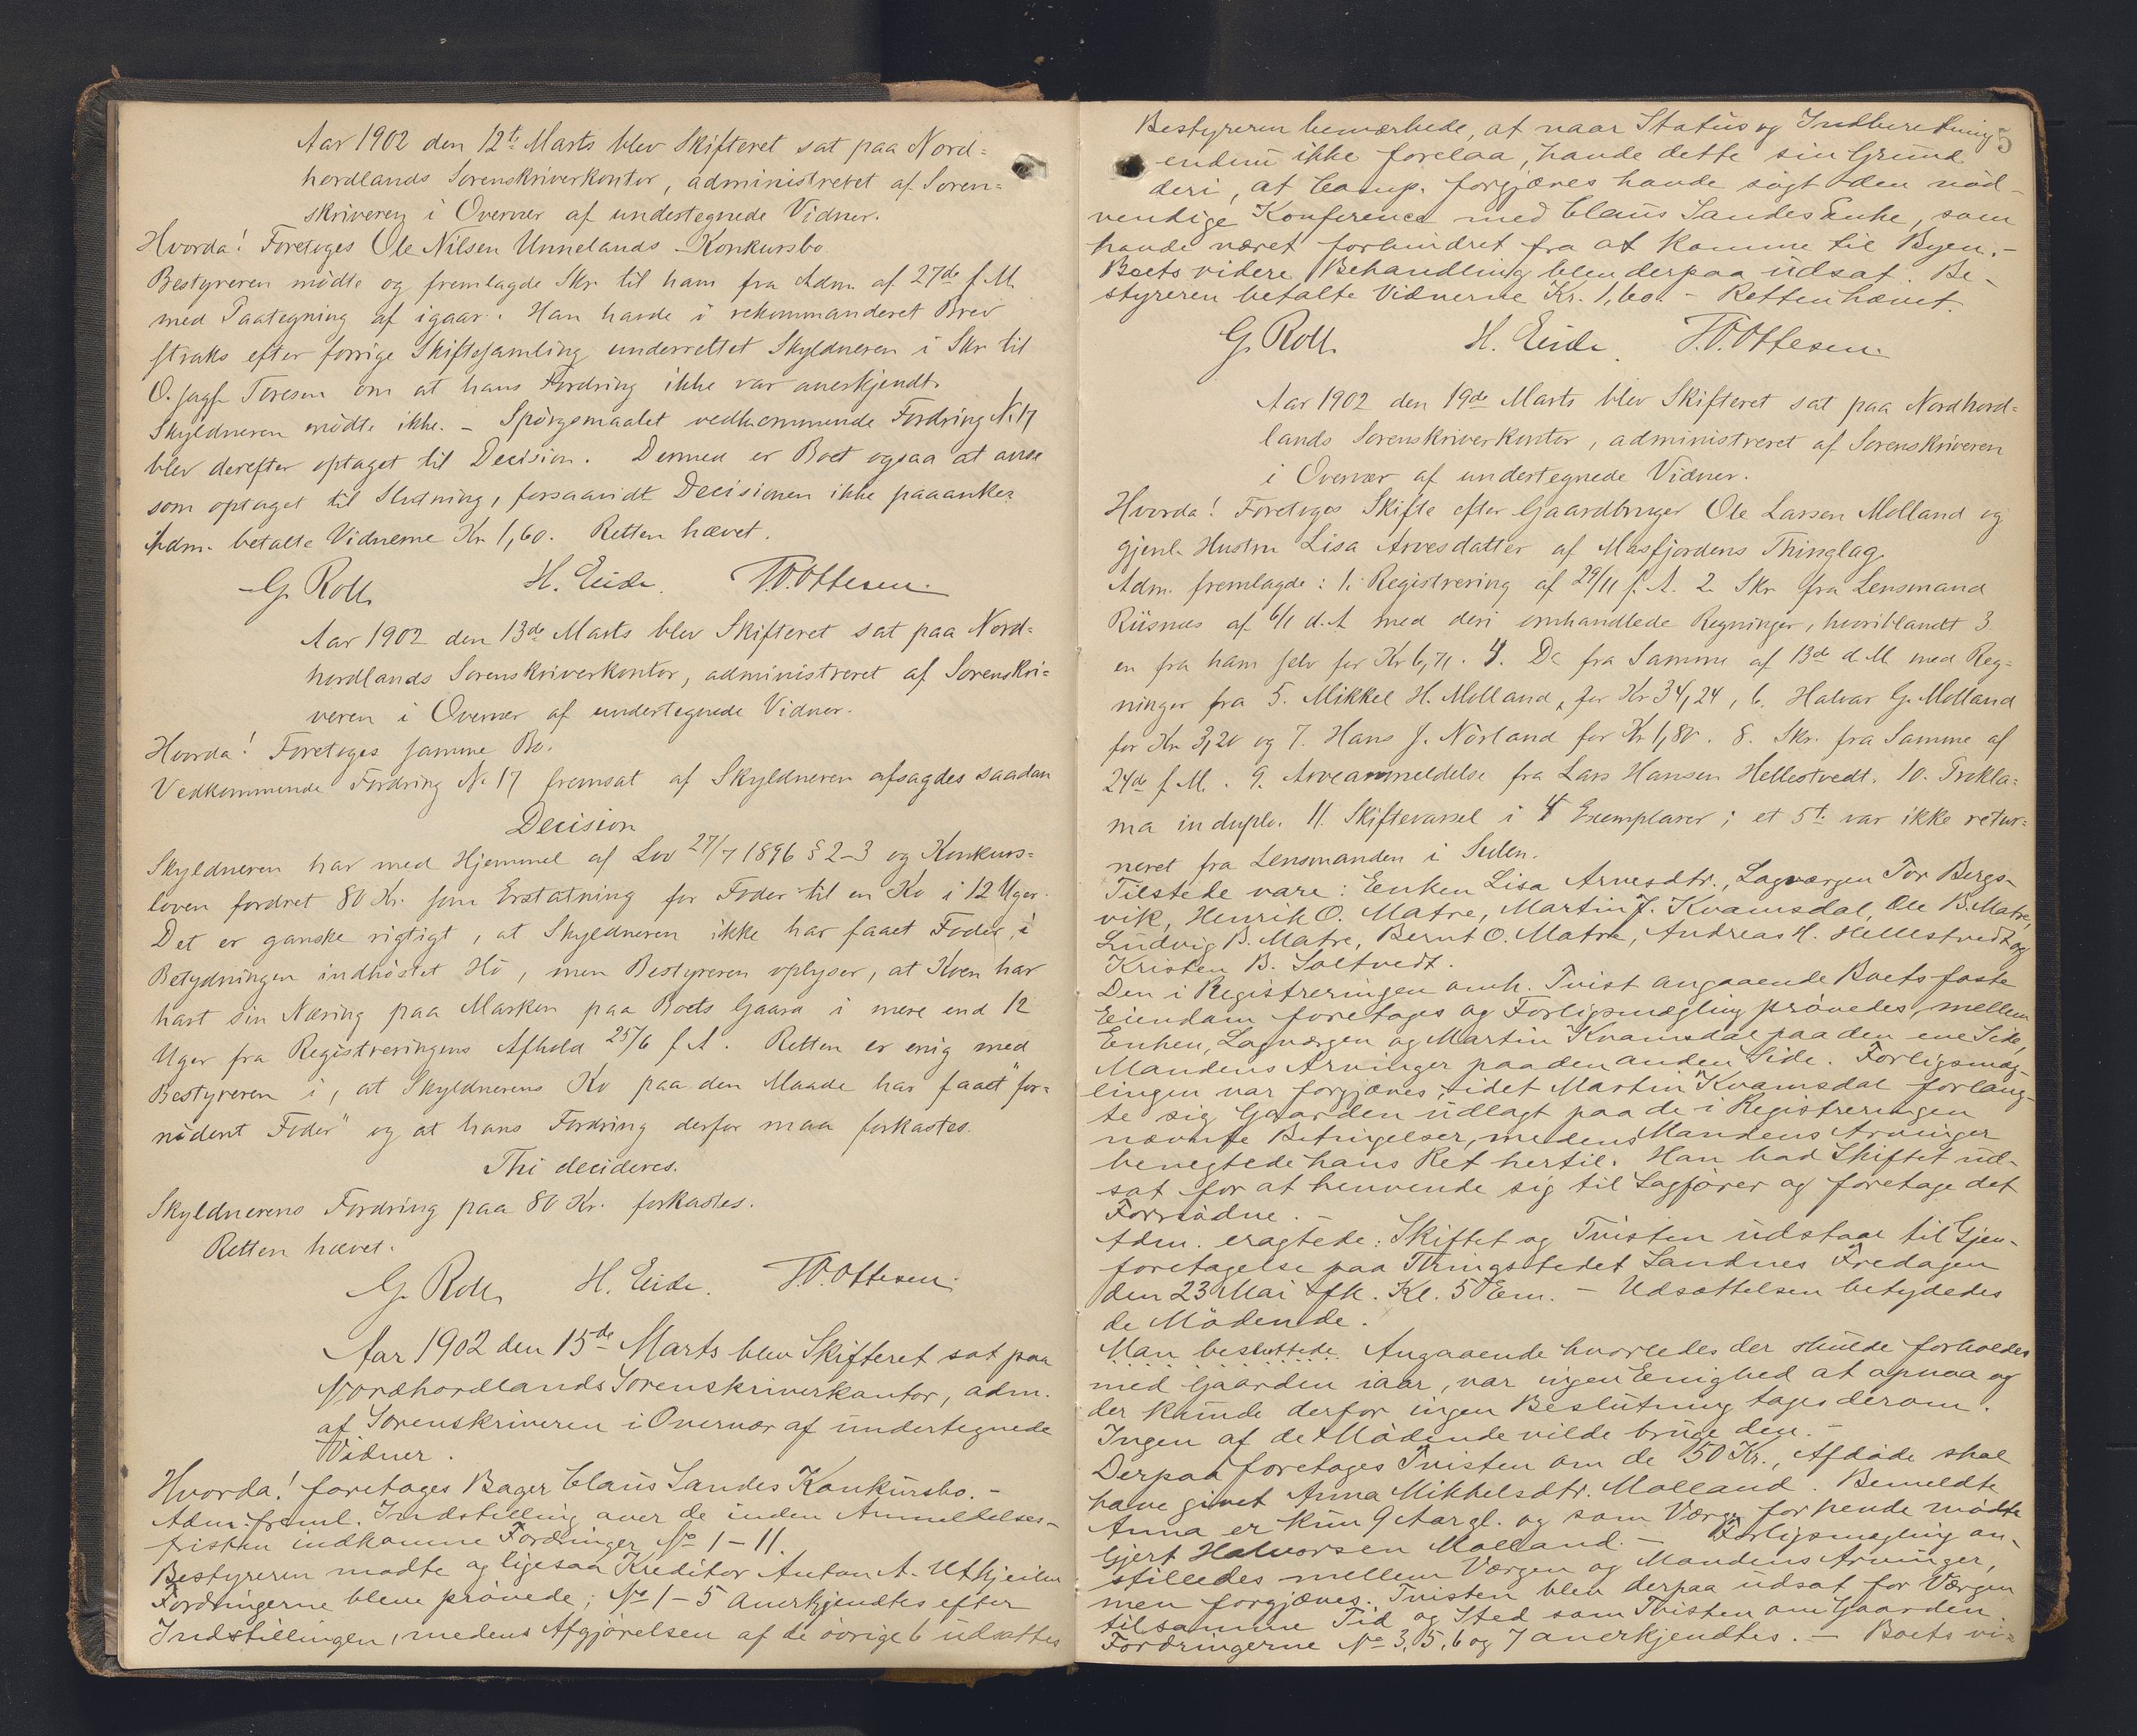 Aar 1902 den 12te Marts blev Skifteret sat paa Nord=
hordlands Sorenskriverkontor, administreret af Soren=
skriveren i Overvær af undestegnede Vidner.
Hvorda! Foretoges Ole Nilsen Unnelands Konkursbo.
Bestyreren mödte og fremlagde Skr. til ham fra Adm. af 27de f. M.
med Paategning af igaar. Han havde i rekommanderet Brev
straks efter forrige Skiftesamling underrettet Skyldneren i Skr. til
O. sagf. Toresen om at hans Fordring ikke var anerkjendt.
Skyldneren mödte ikke. – Spörgsmaalet vedkommende Fordring No 17
blev derefter optaget til Decision. Dermed er Boet ogsaa at anse
som optaget til Slutning, forsaavidt Decisionen ikke paaankes.
Adm. betalte Vidnerne Kr. 1,60. Retten hævet.
G. Roll H. Eide. T.O. Ottesen.
Aar 1902 den 13de Marts blev Skifteret sat paa Nord=
hordlands Sorenskriverkontor, administreret af Sorenskri=
veren i Overvær af undertegnede Vidner.
Hvorda! Foretoges samme Bo.
Vedkommende Fordring No 17 fremsat af Skyldneren afsagdes saadan
Decision
Skyldneren har med Hjemmel af Lov 27/7 1896 § 2-3 og Konkurs=
loven fordret 80 Kr. som Erstatning for Foder til en Ko i 12 Uger.
Det er ganske rigtigt, at Skyldneren ikke har faaet Foder, i
Betydningen indhöstet Hö, men Bestyreren oplyser, at Koen har
havt sin Næring paa Marken paa Boets Gaard i mere end 12
Uger fra Registreringens Afhold 25/6 f. A. Retten er enig med
Bestyreren i, at Skyldnerens Ko paa den Maade har faaet "for=
nödent Foder" og at hans Fordring derfor maa forkastes.
Thi decideres.
Skyldnerens Fordring paa 80 Kr. forkastes.
Retten hævet.
G. Roll H. Eide. T.O. Ottesen.
Aar 1902 den 15de Marts blev Skifteret sat paa
Nordhordlands Sorenskriverkontor, adm.
af Sorenskriveren i Overvær af undertegnede
Vidner.
Hvorda! foretoges Bager Claus Sandes Konkursbo. –
Adm. freml. Indstilling over de inden Anmeldelses-
fristen indkomne Fordringer No 1 – 11.
Bestyreren mødte og ligesaa Kreditor Anton A. Utkjeilen
Fordringerne bleve prövede; No 1 – 5 Anerkjendtes efter
Indstillingen, medens Afgjörelsen af de övrige 6 udsattes
5
Bestyreren bemærkede, at naar Status og Indberetning
endnu ikke forelaa, havde dette sin Grund
deri, at Comp. forgjæves havde sögt den nöd-
vendige Konference med Claus Sandes Enke, som
havde været forhindret fra at komme til Byen. –
Boets videre Behandling blev derpaa udsat. Be-
styreren betalte Vidnerne Kr. 1,60. – Retten hævet.
G. Roll H. Eide. T.O. Ottesen.
Aar 1902 den 19de Marts blev Skifteret sat paa Nordhord=
lands Sorenskriverkontor, administreret af Sorenskriveren
i Overvær af undertegnede Vidner.
Hvorda! Foretoges Skifte efter Gaardbruger Ole Larsen Molland og
gjenl. Hustru Lisa Arnesdatter af Masfjordens Thinglag.
Adm. fremlagde: 1. Registrering af 29/11 f. A. 2. Skr. fra Lensmand
Riisnæs af 6/1 d. A. med deri omhandlede Regninger, hvoriblandt 3
en fra ham selv for Kr. 6,71. 4. Do fra Samme af 13de d. M. med Reg=
ninger fra 5. Mikkel H. Molland, for Kr 34,24, 6. Halvar G. Molland
for Kr. 3,20 og 7. Hans J. Nörland for Kr. 1,80. 8. Skr. fra Samme af
24de f. M. 9. Arveanmeldelse fra Lars Hansen Hellestvedt. 10. Prokla=
ma in duplo. 11. Skiftevarsel i 4 Exemplarer; et 5te var ikke retur=
neret fra Lensmanden i Sulen.
Tilstede vare: Enken Lisa Arnesdtr., Lagværgen Tor Bergs-
vik, Henrik O. Matre, Martin J. Kvamsdal, Ole B. Matre,
Ludvig B. Matre, Bernt O. Matre, Andreas H. Hellestvedt og
Kristen B. Soltvedt.
Den i Registreringen omh. Tvist angaaende Boets faste
Eiendom foretoges og Forligsmægling prövedes, mellem
Enken, Lagværgen og Martin Kvamsdal paa den ene Side,
Mandens Arvinger paa den anden Side. Forligsmæg-
lingen var forgjæves, idet Martin Kvamsdal forlang-
te sig Gaarden udlagt paa de i Registreringen
nævnte Betingelser, medens Mandens Arvinger
benegtede hans Ret hertil. Han bad Skiftet ud-
sat for at henvende sig til Sagförer og foretage det
Fornödne. –
Adm. eragtede: Skiftet og Tvisten udstaar til Gjen-
foretagelse paa Thingstedet Sandnes Fredagen
den 23 Mai fk. Kl. 5 Em. – Udsættelsen betydedes
de Mödende.
Man besluttede. Angaaende hvorledes der skulde forholdes
med Gaarden iaar, var ingen Enighed at opnaa og
der kunde derfor ingen Beslutning tages derom.
Ingen af de Mödende vilde bruge den. –
Derpaa foretoges Tvisten om de 50 Kr., Afdöde skal
have givet Anna Mikkelsdtr. Molland. Bemeldte
Anna er kun 9 Aar gl. og som Værge for hende mödte
Gjert Halvorsen Molland. – Forligsmægling an-
stilledes mellem Værgen og Mandens Arvinger,
men forgjæves. Tvisten blev derpaa udsat for Værgen
til samme Tid og Sted som Tvisten om Gaarden.
Fordringerne No 3, 5, 6 og 7 anerkjendtes. – Boets vi=